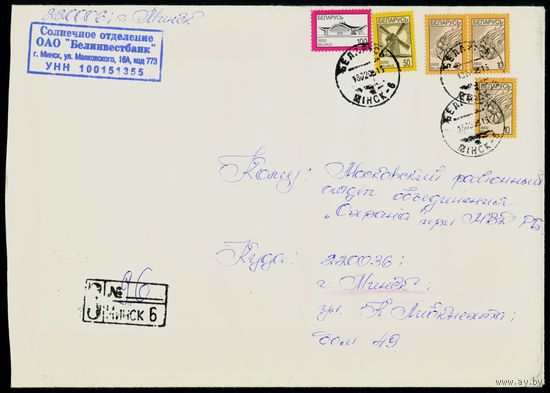 220006; г. Минск
Солнечное отделение
ОАО "Белинвестбанк"
г. Минск, ул. Маяковского, 16А, код 773
УНН 100151355
БЕЛАРУСЬ
100
БЕЛАРУСЬ
50
БЕЛАРУСЬ
БЕЛАРУСЬ
10
БЕЛАРУСЬ
МІНСК-6
МІНСК-6
Кому: Московский районный
отдел объединения
"Охрана" при МВД РБ
Куда: 220036;
г. Минск;
ул. К. Либкнехта,
дом 49
З № 96
МИНСК 6
www.ay.by